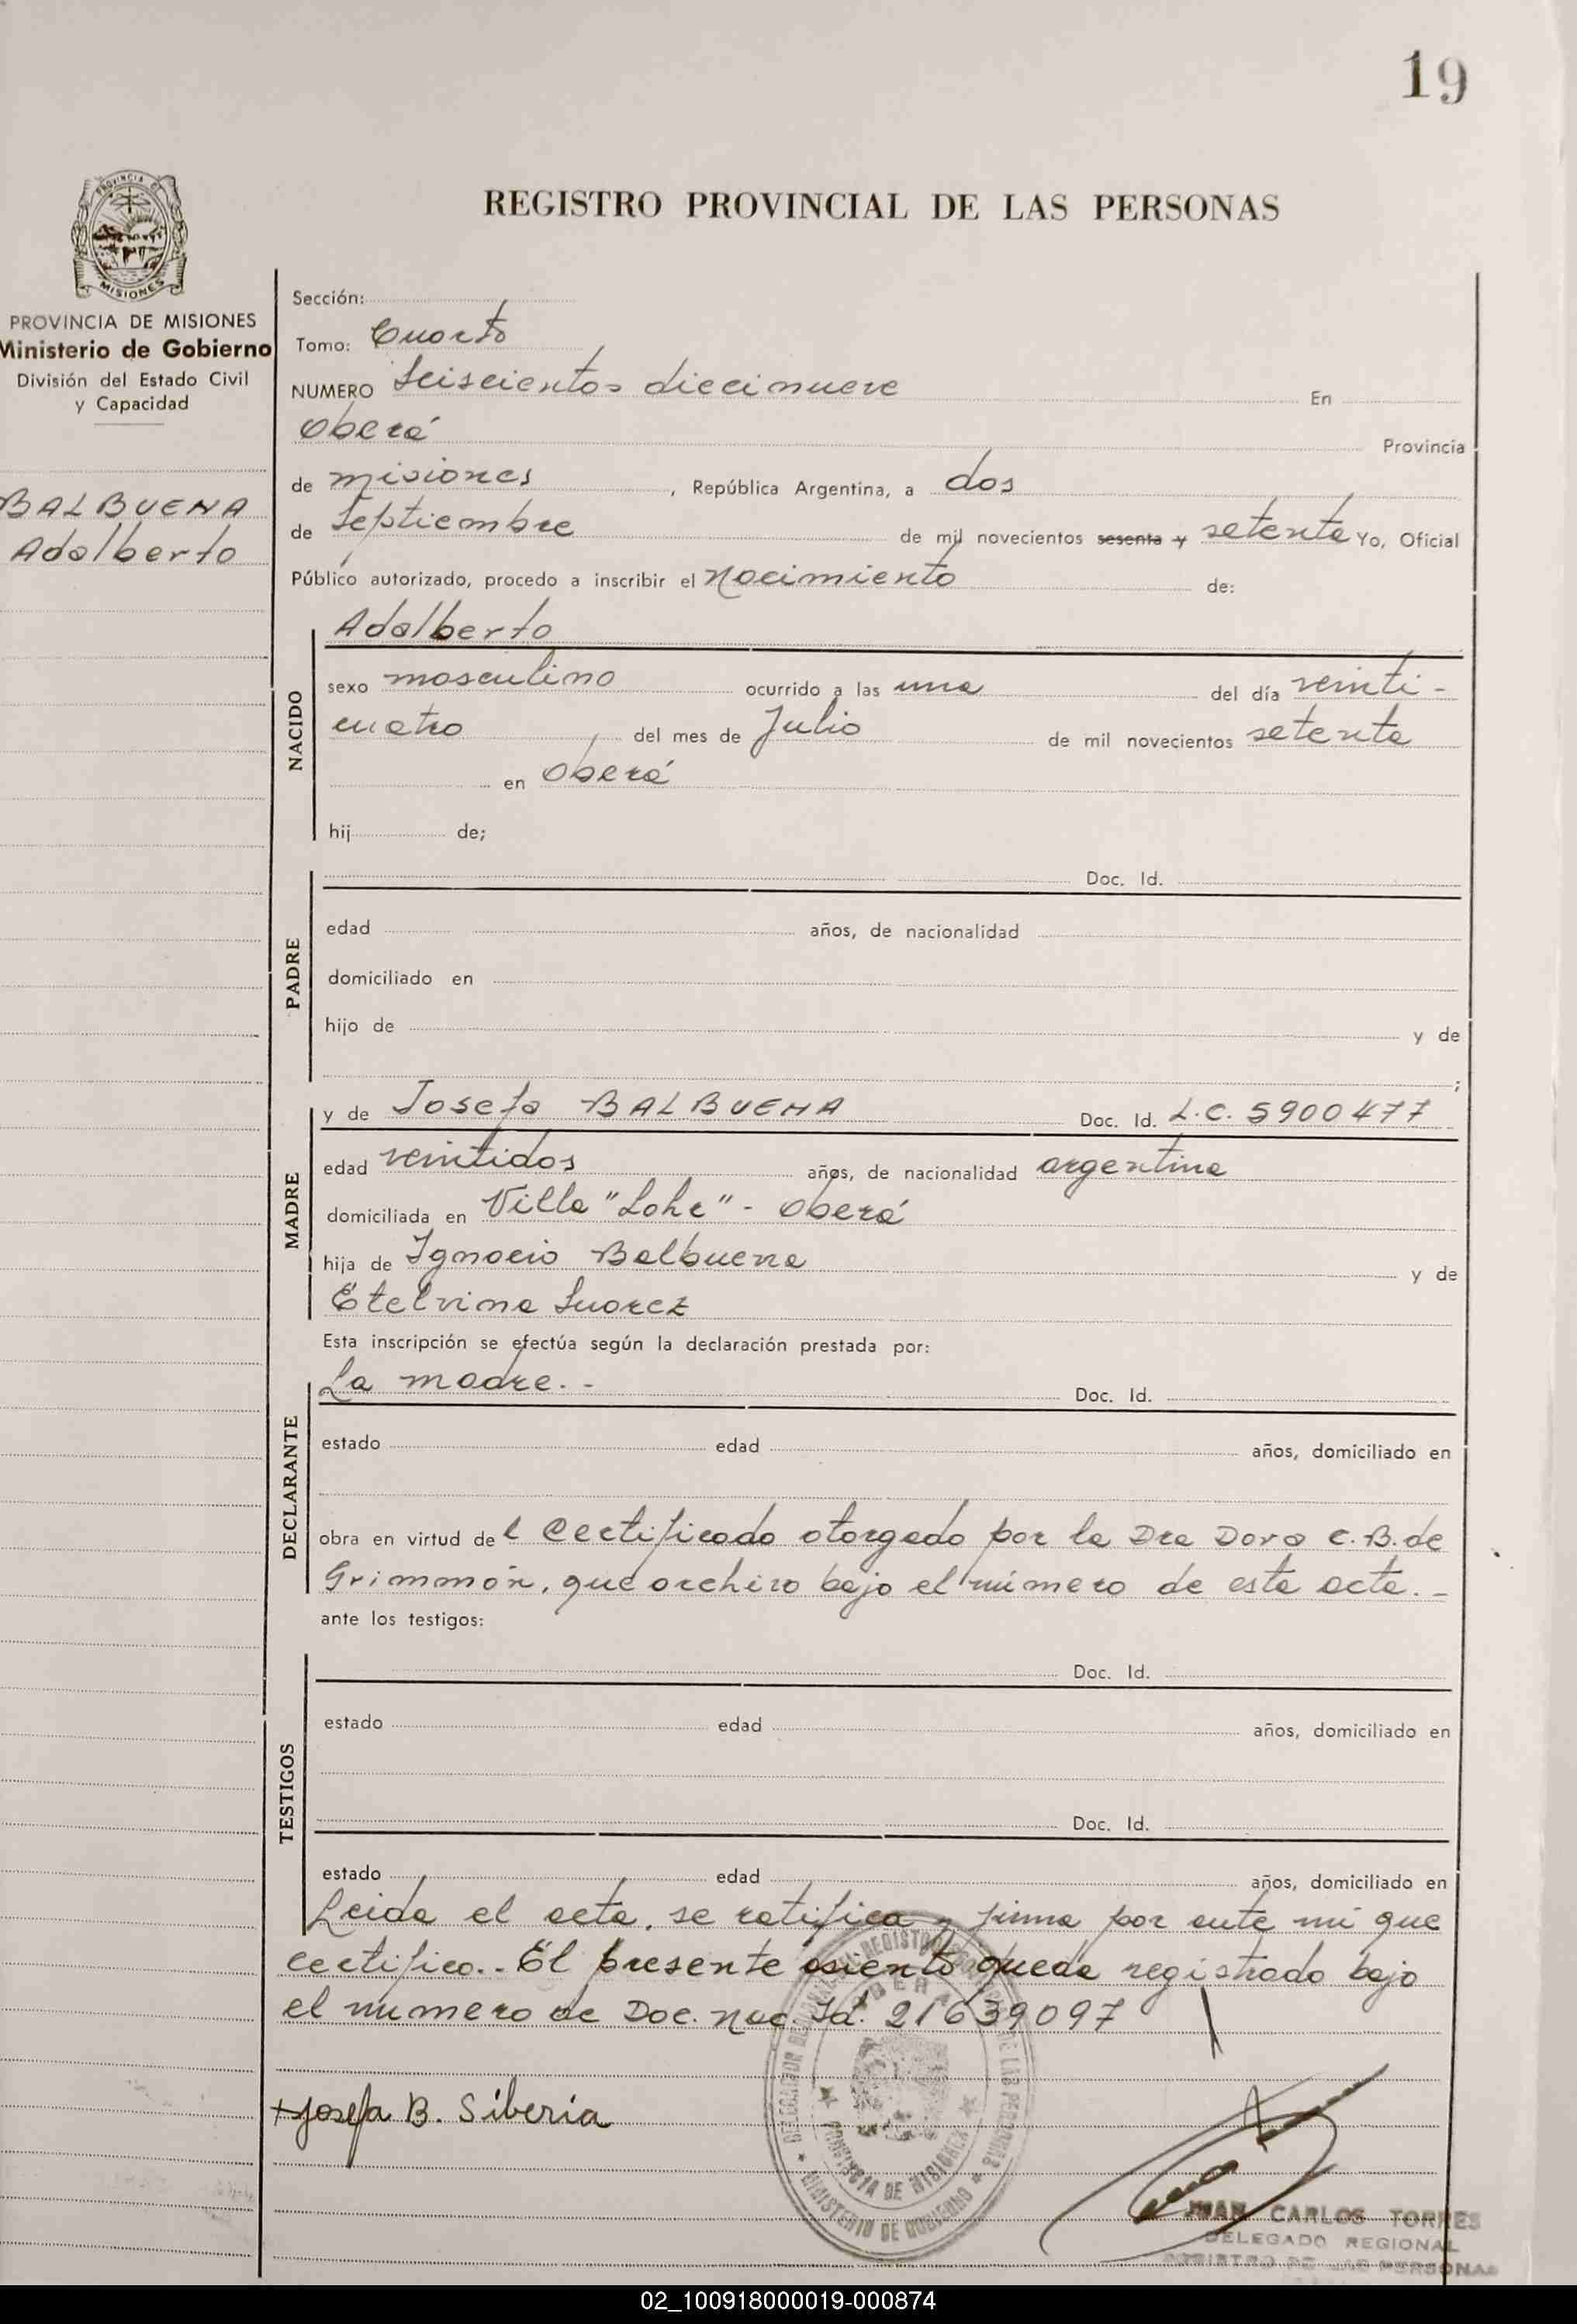 19
PROVINCIA DE
MISIONES
REGISTRO PROVINCIAL DE LAS PERSONAS
PROVINCIA DE MISIONES
Ministerio de Gobierno
División del Estado Civil
y Capacidad
BALBUENA
Adalberto
Sección:
Tomo: Cuarto
NUMERO Seiscientos diecinueve En
Oberá Provincia
de misiones, República Argentina, a dos
de Septiembre de mil novecientos sesenta y setenta Yo, Oficial
Público autorizado, procedo a inscribir el Nacimiento de:
NACIDO
Adalberto
sexo masculino ocurrido a las una del día veinti-
cuatro del mes de Julio de mil novecientos setenta
en Oberá
hij de;
PADRE
Doc. Id.
edad años, de nacionalidad
domiciliado en
hijo de y de
;
MADRE
y de Josefa BALBUENA Doc. Id. L.C. 5900477
edad veintidos años, de nacionalidad argentina
domiciliada en Villa "Lohr" - Oberá
hija de Ignacio Balbuena y de
Etelvina Suarez
Esta inscripción se efectúa según la declaración prestada por:
DECLARANTE
La madre.- Doc. Id.
estado edad años, domiciliado en
obra en virtud del Certificado otorgado por la Dra Dora C.B. de
Grimmon, que archivo bajo el número de esta acta.-
ante los testigos:
TESTIGOS
Doc. Id.
estado edad años, domiciliado en
Doc. Id.
estado edad años, domiciliado en
Leida el acta, se ratifica y firma por ante mí que
certifico.- El presente asiento queda registrado bajo
el numero de Doc. Nac. Id. 21639097
OBERA
PROVINCIA DE MISIONES
MINISTERIO DE GOBIERNO
Josefa B. Siberia
JUAN CARLOS TORRES
DELEGADO REGIONAL
REGISTRO DE LAS PERSONAS
02_100918000019-000874